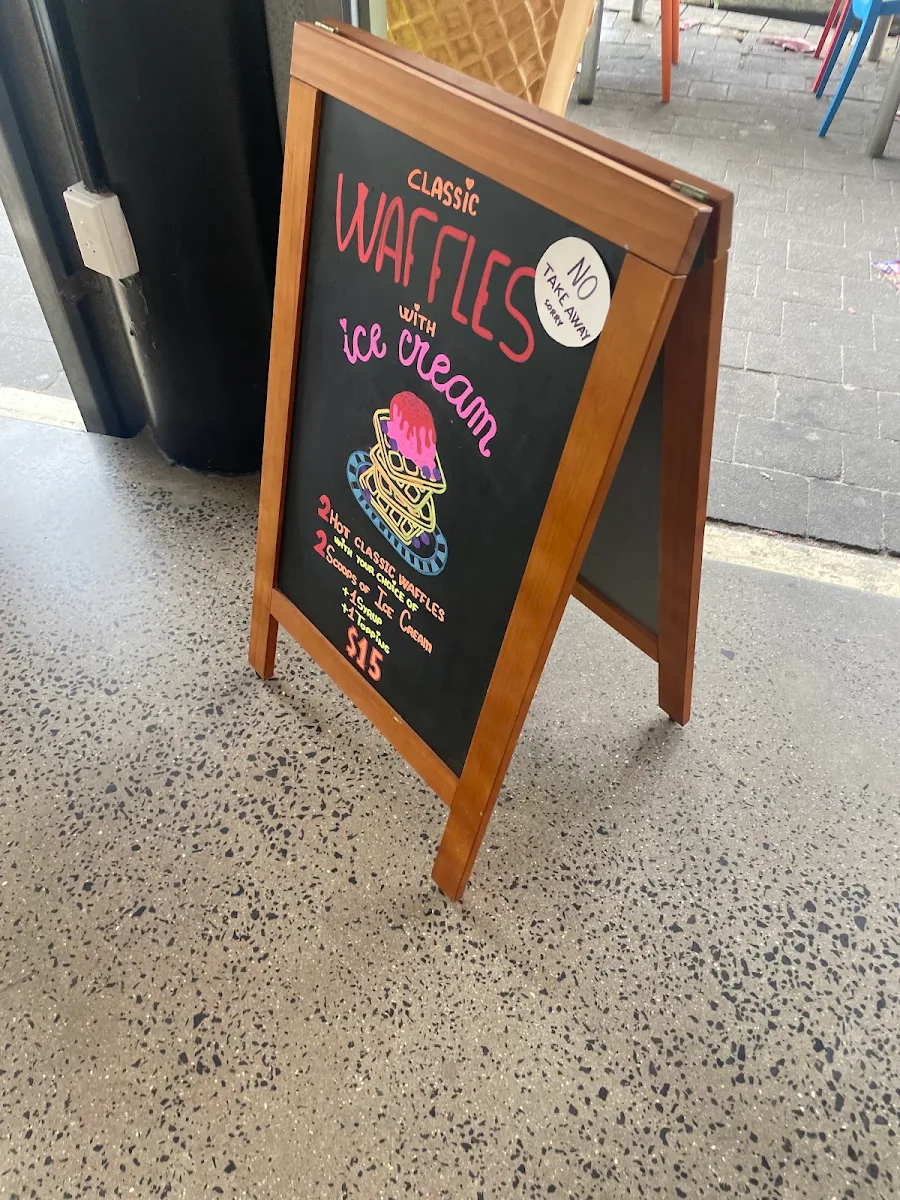 CLASSIC
WAFFLES
WITH
ice cream
NO
TAKE AWAY
SORRY
2 HOT CLASSIC WAFFLES
WITH YOUR CHOICE OF
2 SCOOPS OF ICE CREAM
+1 SYRUP
+1 TOPPING
$15